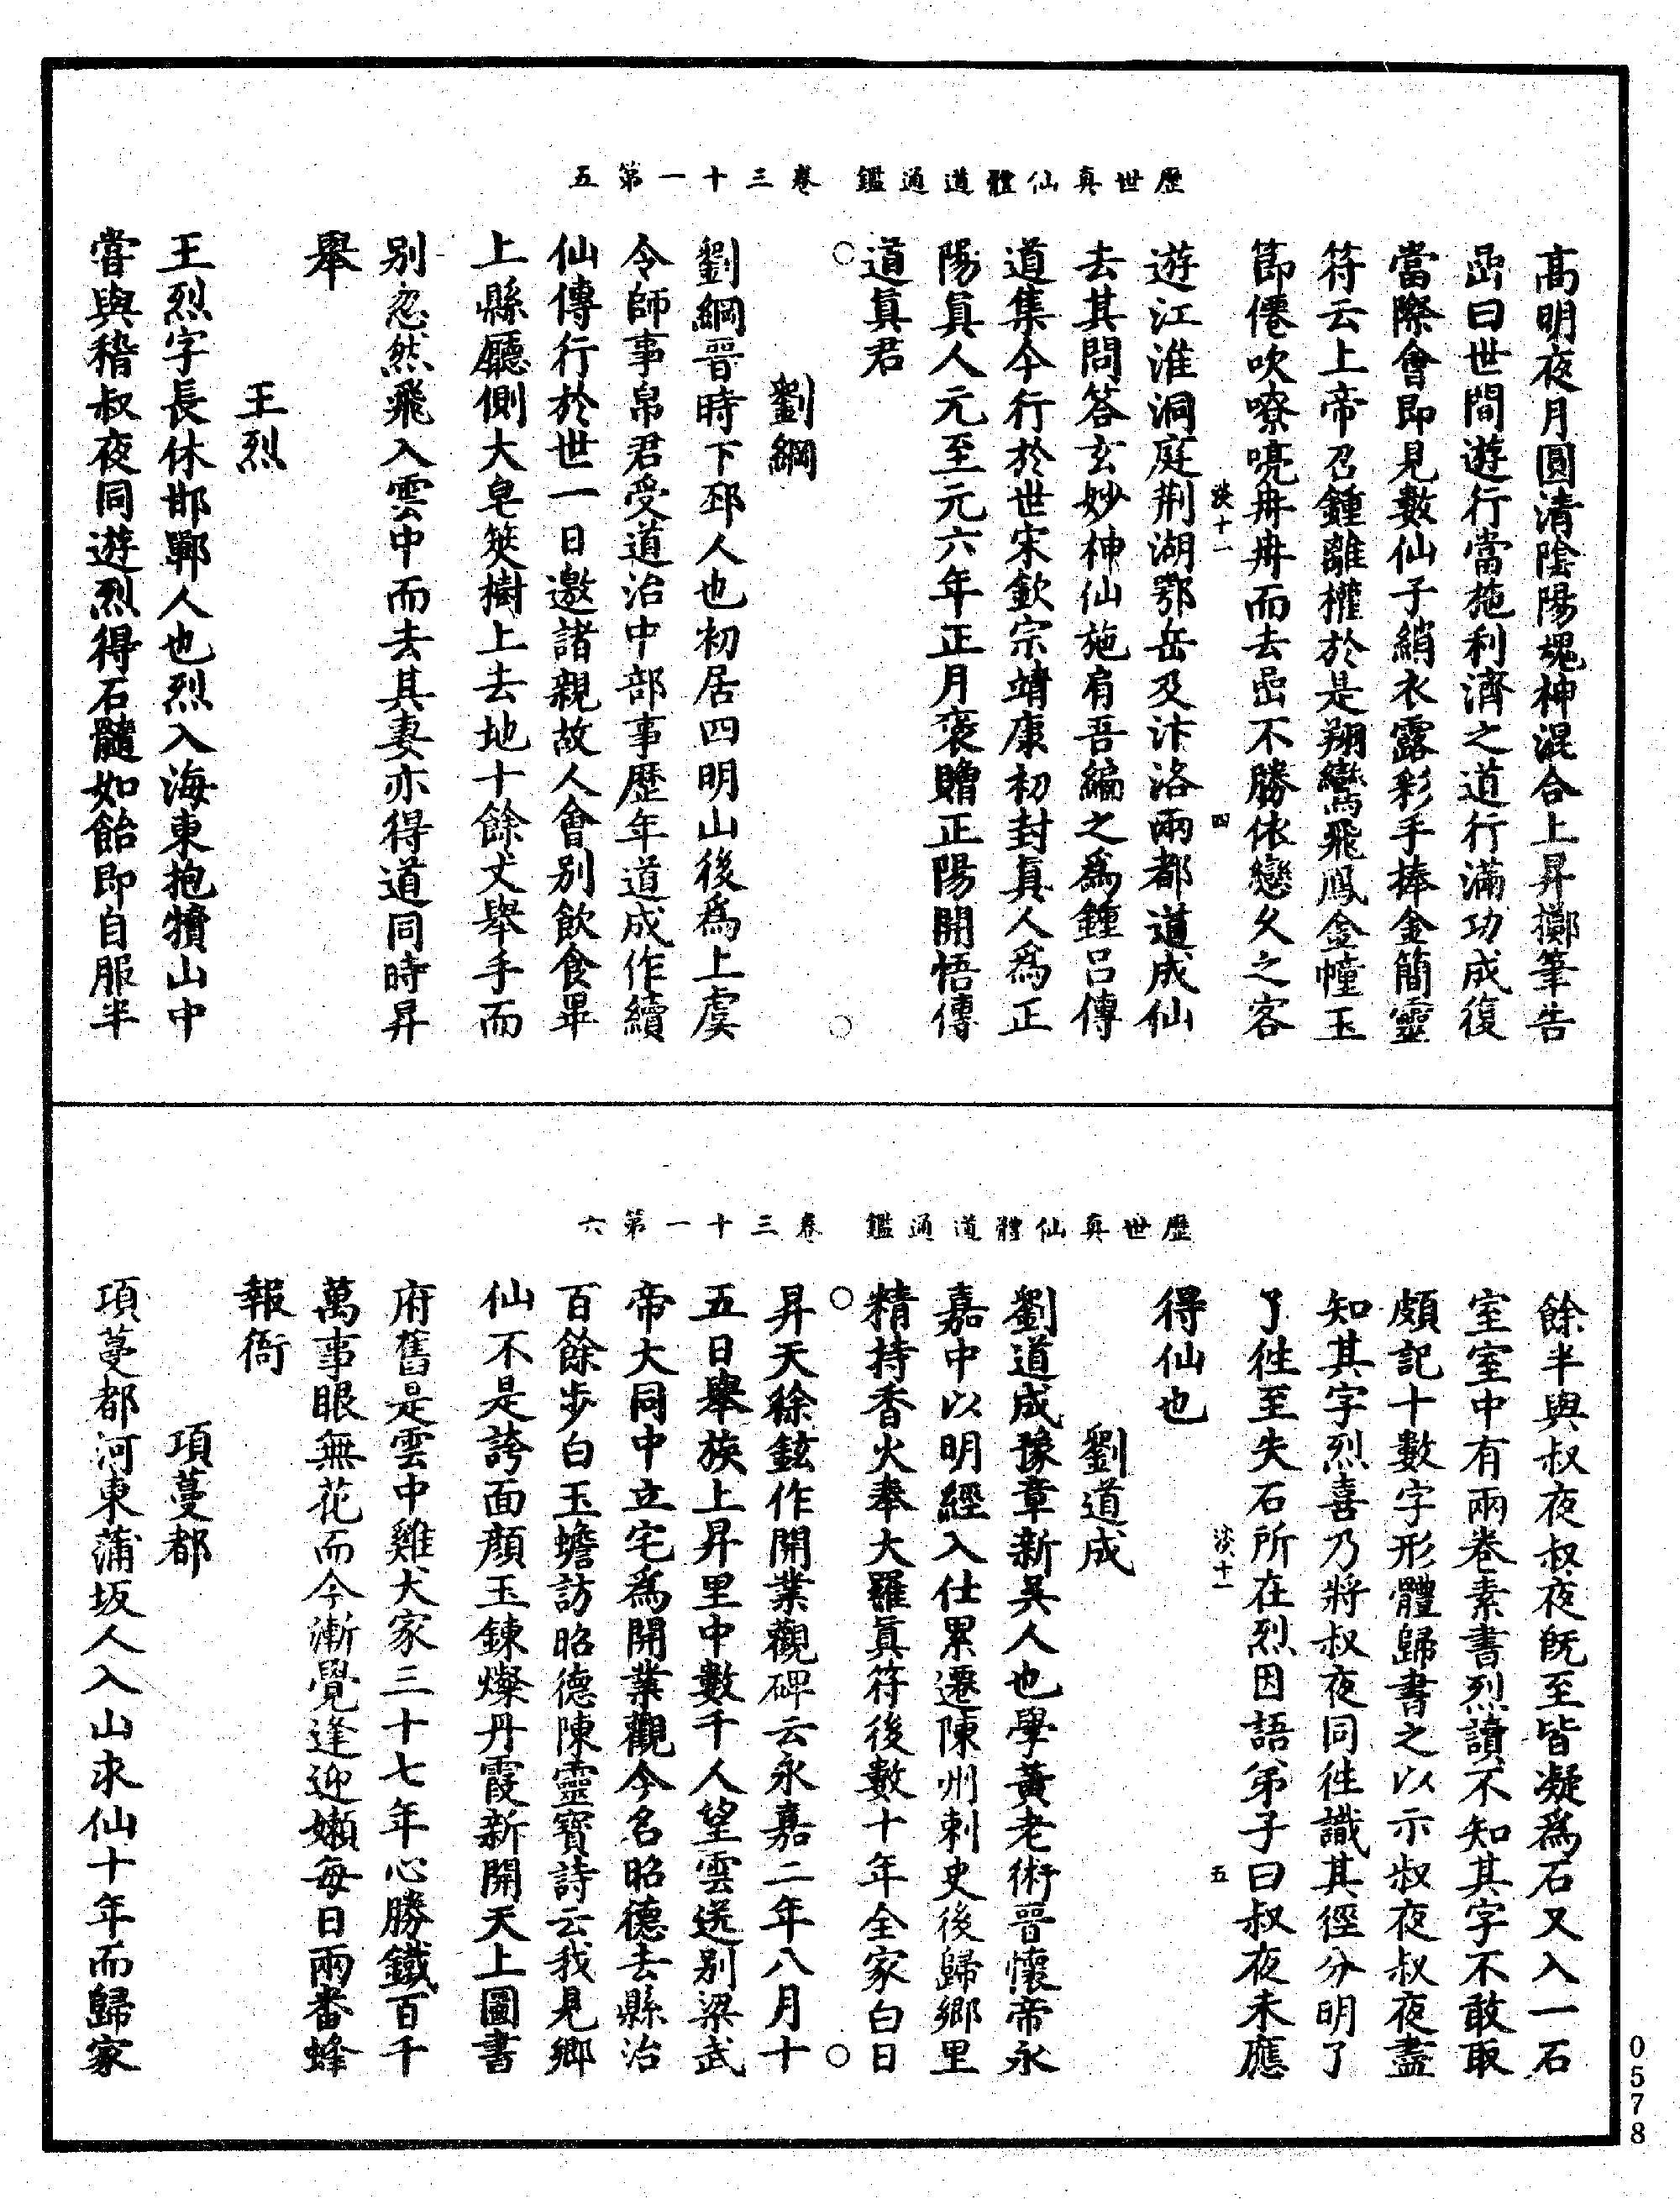 歷世真仙體道通鑑　卷三十一第五
高明夜月圓清陰陽魂神混合上昇擲筆告
嵒曰世間遊行當施利濟之道行滿功成復
當際會即見數仙子綃衣露彩手捧金簡靈
符云上帝召鍾離權於是翔鸞飛鳳金幢玉
節僊吹嘹喨冉冉而去嵒不勝依戀久之客
淡十一　四
遊江淮洞庭荆湖鄂岳及汴洛兩都道成仙
去其問答玄妙神仙施肩吾編之爲鍾呂傳
道集今行於世宋欽宗靖康初封真人爲正
陽真人元至元六年正月褒贈正陽開悟傳
道真君
劉綱
劉綱晉時下邳人也初居四明山後爲上虞
令師事帛君受道治中部事歷年道成作續
仙傳行於世一日邀諸親故人會别飲食畢
上縣廳側大皂筴樹上去地十餘丈舉手而
别忽然飛入雲中而去其妻亦得道同時昇
舉
王烈
王烈字長休邯鄲人也烈入海東抱犢山中
嘗與嵇叔夜同遊烈得石髓如飴即自服半
歷世真仙體道通鑑　卷三十一第六
餘半與叔夜叔夜旣至皆凝爲石又入一石
室室中有兩卷素書烈讀不知其字不敢取
頗記十數字形體歸書之以示叔夜叔夜盡
知其字烈喜乃將叔夜同徃識其徑分明了
了徃至失石所在烈因語弟子曰叔夜未應
淡十一　五
得仙也
劉道成
劉道成豫章新吳人也學黃老術晉懷帝永
嘉中以明經入仕累遷陳州刺史後歸鄉里
精持香火奉大羅真符後數十年全家白日
昇天徐鉉作開業觀碑云永嘉二年八月十
五日舉族上昇里中數千人望雲送别梁武
帝大同中立宅爲開業觀今名昭德去縣治
百餘步白玉蟾訪昭德陳靈寶詩云我見鄉
仙不是誇面顏玉鍊燦丹霞新開天上圖書
府舊是雲中雞犬家三十七年心勝鐵百千
萬事眼無花而今漸覺逢迎嬾每日兩番蜂
報衙
項蔓都
項蔓都河東蒲坂人入山求仙十年而歸家
0578